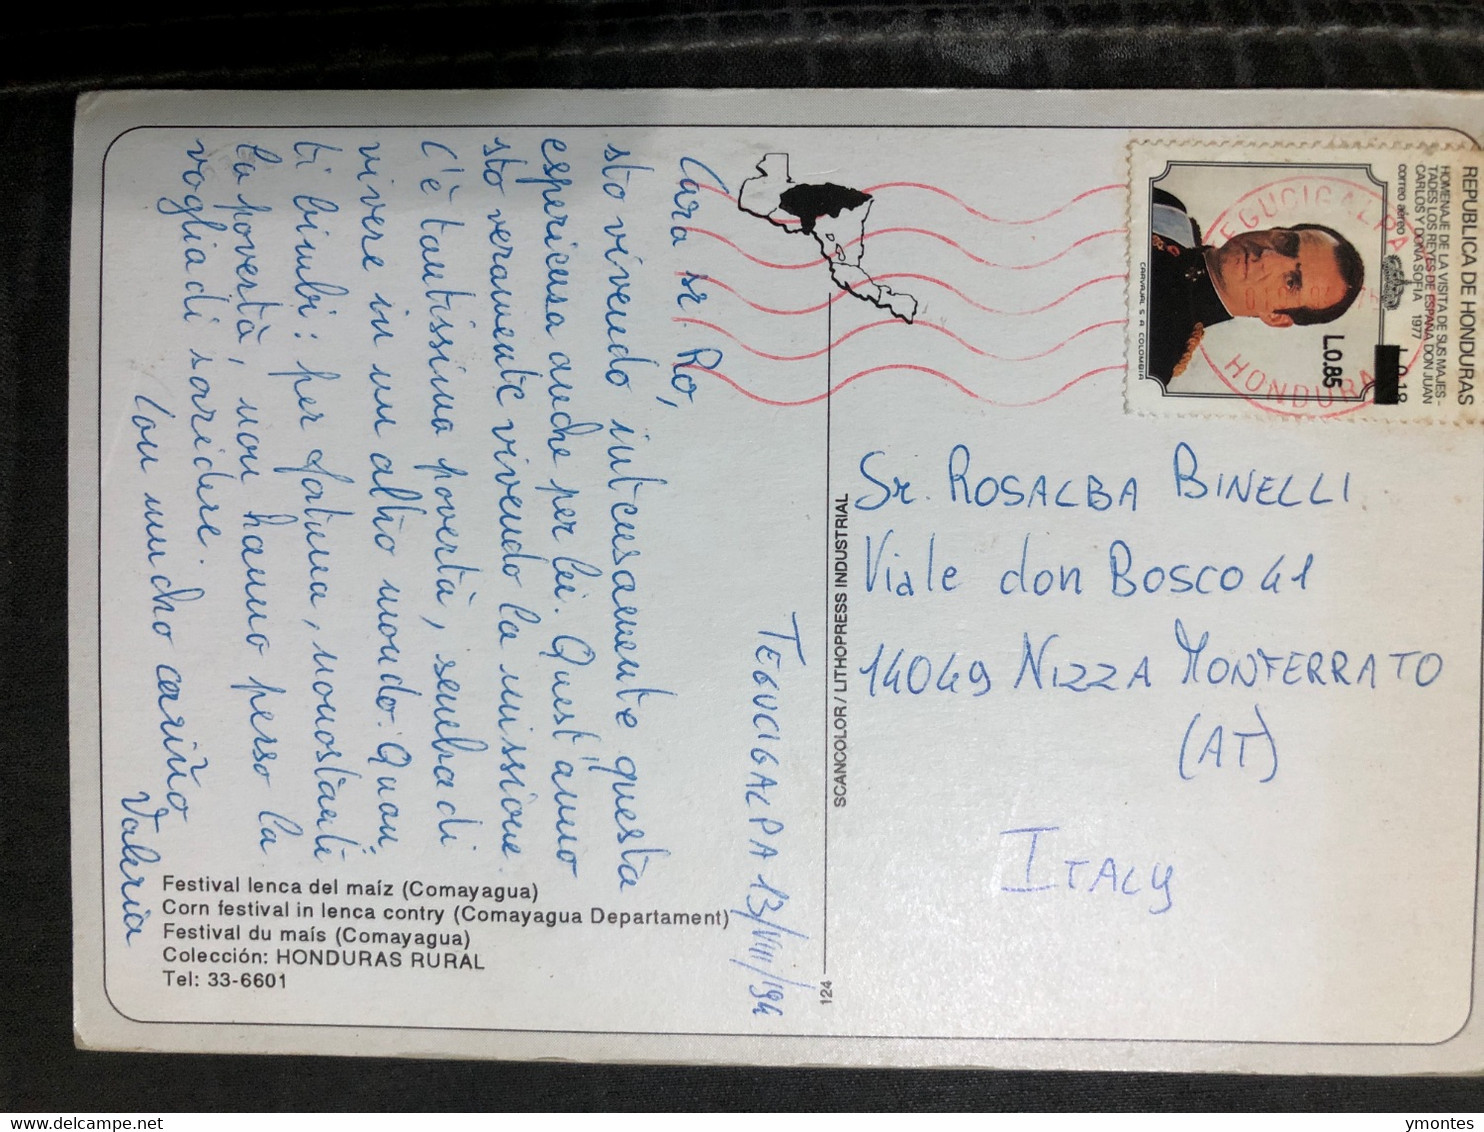 TEGUCIGALPA 13/VIII/'94
Cara sr. Ro,
sto vivendo intensamente questa
esperienza anche per lei. Quest'anno
sto veramente vivendo la missione.
C'è tantissima povertà, sembra di
vivere in un altro mondo. Quan-
ti bimbi: per fortuna, nonostante
la povertà, non hanno perso la
voglia di sorridere.
Con mucho cariño
Valeria
Festival lenca del maíz (Comayagua)
Corn festival in lenca contry (Comayagua Departament)
Festival du maïs (Comayagua)
Colección: HONDURAS RURAL
Tel: 33-6601
SCANCOLOR / LITHOPRESS INDUSTRIAL
124
REPUBLICA DE HONDURAS
HOMENAJE DE LA VISITA DE SUS MAJES-
TADES LOS REYES DE ESPAÑA, DON JUAN
CARLOS Y DOÑA SOFIA 1977
correo aéreo L 0.18
L0.85
CARVAJAL S A COLOMBIA
TEGUCIGALPA
HONDURAS
Sr. ROSALBA BINELLI
Viale don BOSCO 41
14049 NIZZA MONFERRATO
(AT)
ITALY
delcampe.net
ymontes